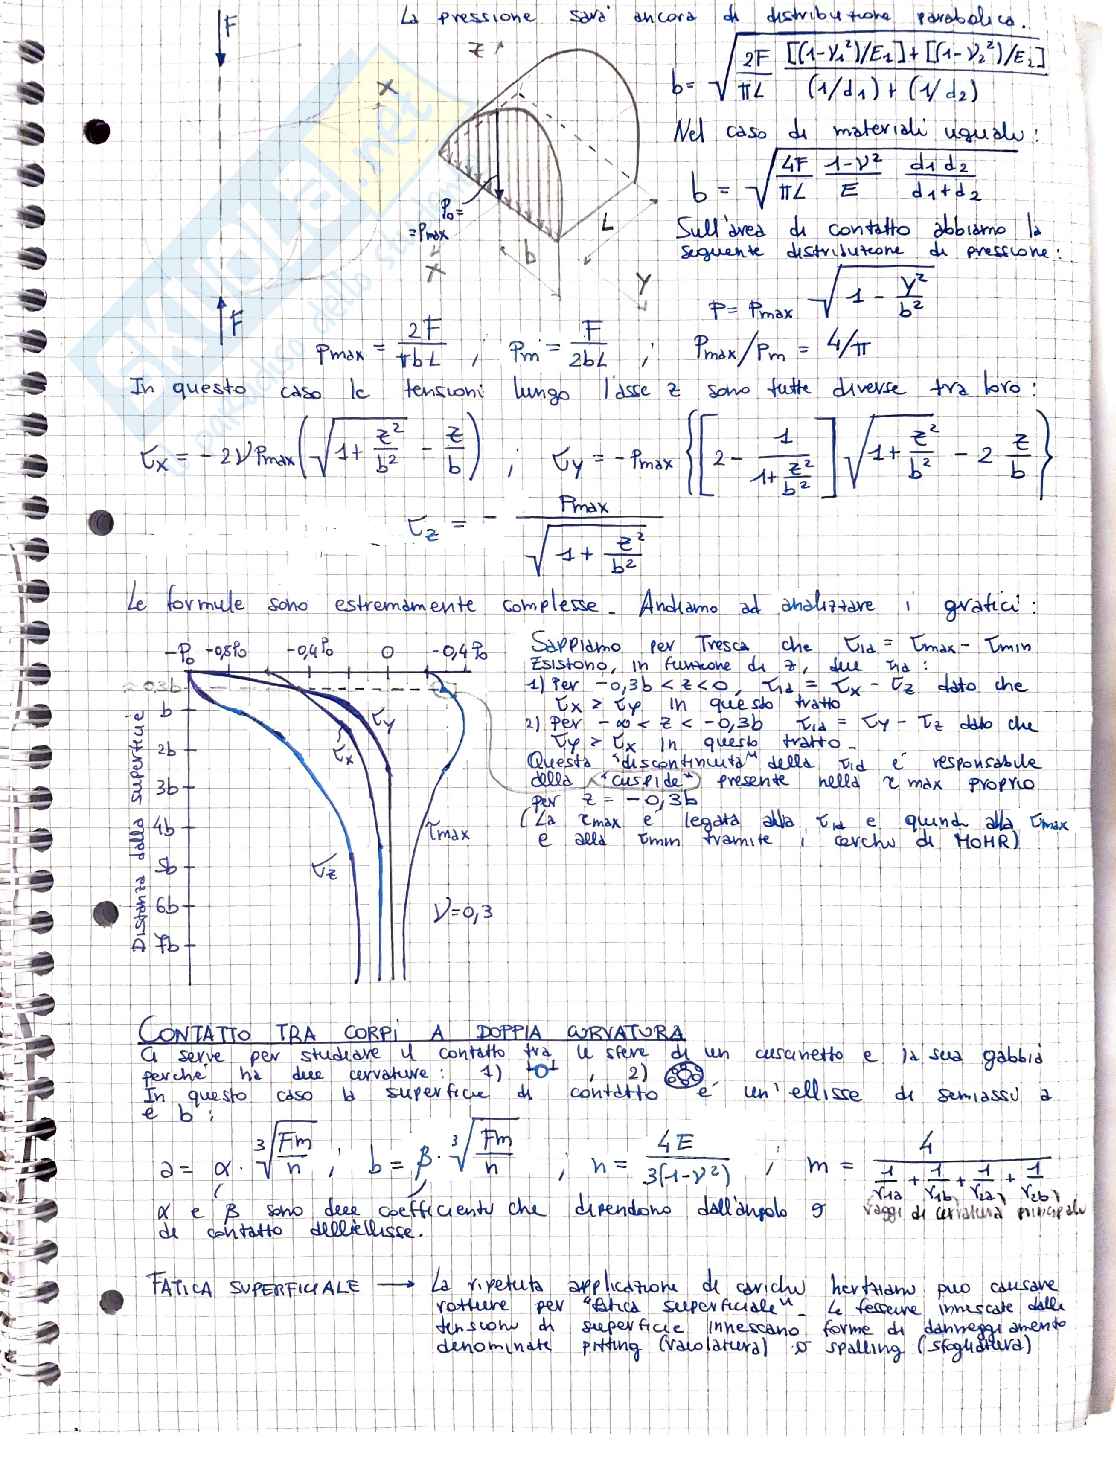 La pressione sarà ancora di distribuzione parabolica.
F
Z
X
b = √(2F/πL · [[(1-ν₁²)/E₁] + [(1-ν₂²)/E₂]] / [(1/d₁) + (1/d₂)])
Nel caso di materiali uguali:
b = √(4F/πL · (1-ν²)/E · d₁d₂/(d₁+d₂))
P₀=
=Pmax
X
b
L
Y
F
Sull'area di contatto abbiamo la
seguente distribuzione di pressione:
P = Pmax √(1 - y²/b²)
Pmax = 2F/πbL ; Pm = F/2bL ; Pmax/Pm = 4/π
In questo caso le tensioni lungo l'asse z sono tutte diverse tra loro:
σx = -2νPmax(√(1+z²/b²) - z/b) ; σy = -Pmax{[2 - 1/(1+z²/b²)]√(1+z²/b²) - 2 z/b}
σz = - Pmax/√(1+z²/b²)
Le formule sono estremamente complesse. Andiamo ad analizzare i grafici:
-P₀ -0,8P₀ -0,4P₀ 0 -0,4P₀
0,3b
b
2b
3b
4b
5b
6b
7b
Distanza dalla superficie
σy
σx
σz
τmax
ν=0,3
Sappiamo per Tresca che σid = σmax - σmin
Esistono, in funzione di z, due σid:
1) Per -0,3b < z < 0, σid = σx - σz dato che
σx > σy in questo tratto
2) Per -∞ < z < -0,3b σid = σy - σz dato che
σy > σx in questo tratto.
Questa "discontinuità" della σid è responsabile
della "cuspide" presente nella τ max proprio
per z = -0,3b
(La τmax è legata alla σid e quindi alla σmax
e alla σmin tramite i cerchi di MOHR)
CONTATTO TRA CORPI A DOPPIA CURVATURA
Ci serve per studiare il contatto tra le sfere di un cuscinetto e la sua gabbia
perché ha due curvature: 1) , 2)
In questo caso la superficie di contatto è un'ellisse di semiassi a
e b:
a = α · ³√(Fm/n) ; b = β · ³√(Fm/n) ; n = 4E/3(1-ν²) ; m = 4/(1/r1a + 1/r1b + 1/r2a + 1/r2b)
α e β sono due coefficienti che dipendono dall'angolo θ raggi di curvatura principali
di contatto dell'ellisse.
FATICA SUPERFICIALE → La ripetuta applicazione di carichi hertziani può causare
rotture per "fatica superficiale". Le fessure innescate dalle
tensioni di superficie innescano forme di danneggiamento
denominate pitting (vaiolatura) o spalling (sfogliatura)
SKUOLA.net